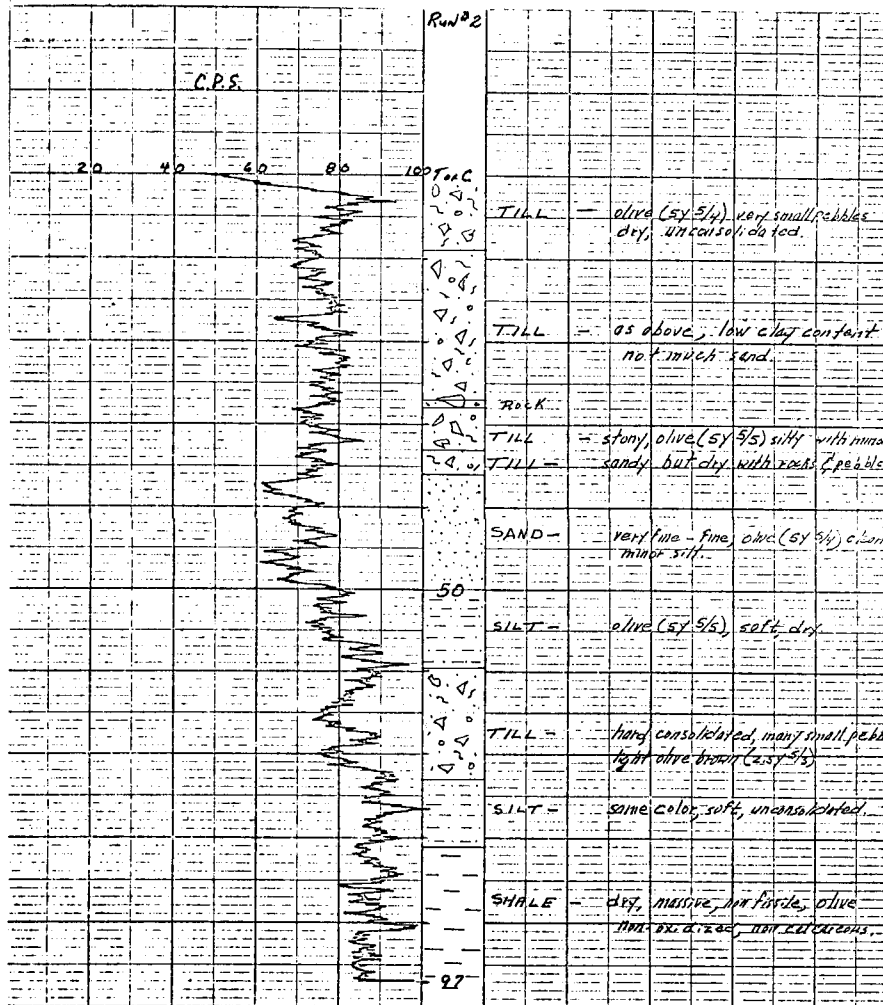 RUN #2
C.P.S.
20 40 60 80 100 T.o.C
TILL — olive (5Y 5/4) very small pebbles
dry, unconsolidated.
TILL — as above, low clay content
not much sand.
ROCK
TILL — stony, olive (5Y 5/5) silty with mino
TILL — sandy but dry with rocks & pebble
SAND — very fine - fine, olive (5Y 5/4) clean
minor silt.
50
SILT — olive (5Y 5/5), soft, dry.
TILL — hard consolidated, many small pebb
light olive brown (2.5Y 5/5)
SILT — same color, soft, unconsolidated.
SHALE — dry, massive, non fissile, olive
non-oxidized, non calcareous.
97